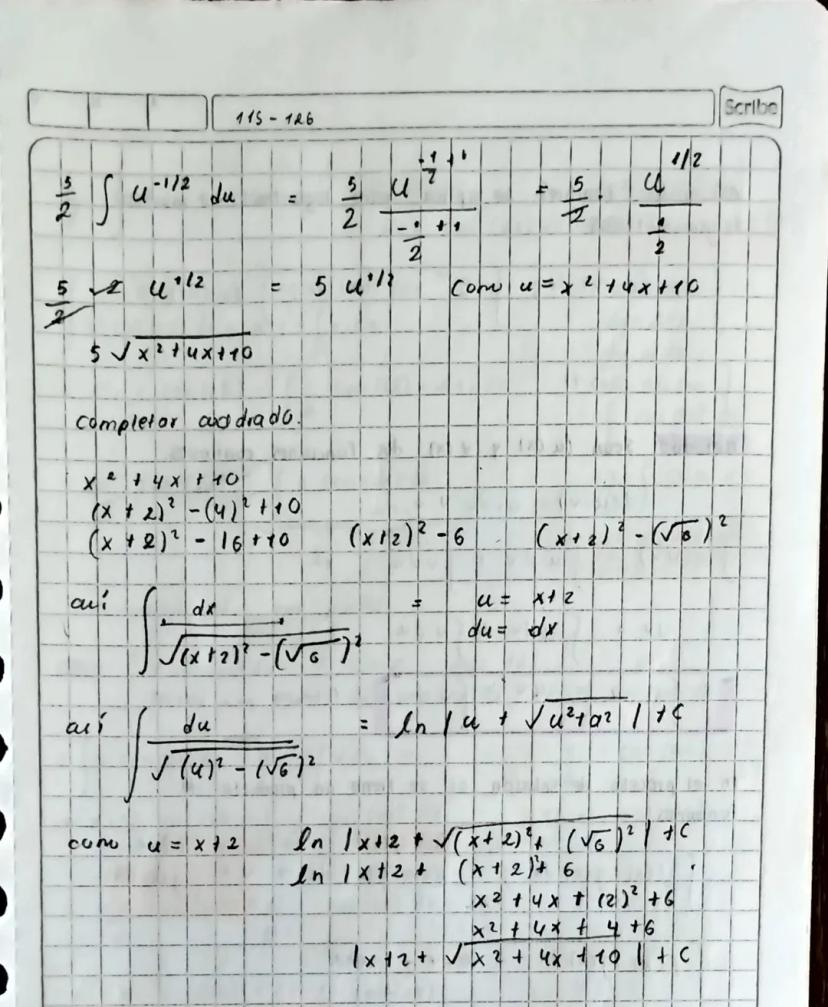 115 - 126
Scribe
5/2 ∫ u^-1/2 du = 5/2 u^(-1/2 + 1) / (-1/2 + 1) = 5/2 · u^1/2 / (1/2)
5/2 · 2 u^1/2 = 5 u^1/2 como u = x² + 4x + 10
5 √(x² + 4x + 10)
completar cuadrado.
x² + 4x + 10
(x + 2)² - (4)² + 10
(x + 2)² - 16 + 10 (x+2)² - 6 (x+2)² - (√6)²
así ∫ dx / √((x+2)² - (√6)²) = u = x+2
du = dx
así ∫ du / √((u)² - (√6)²) = ln |u + √(u² + a²)| + C
como u = x+2 ln |x+2 + √((x+2)² + (√6)²)| + C
ln |x+2 + (x+2)² + 6
x² + 4x + (2)² + 6
x² + 4x + 4 + 6
|x+2 + √(x² + 4x + 10)| + C